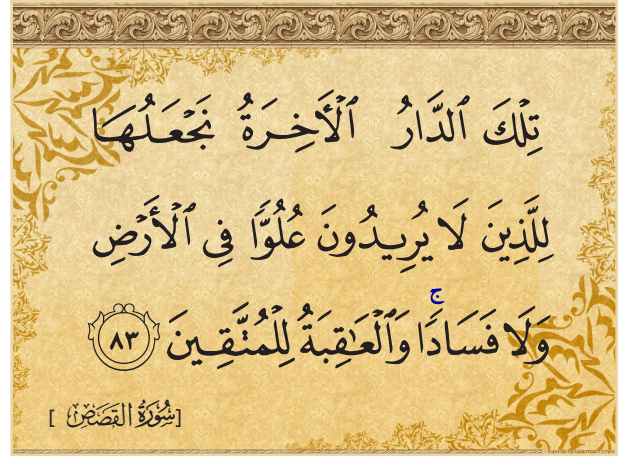 تِلْكَ ٱلدَّارُ ٱلْأَخِرَةُ نَجْعَلُهَا
لِلَّذِينَ لَا يُرِيدُونَ عُلُوًّا فِى ٱلْأَرْضِ
وَلَا فَسَادًا ۚ وَٱلْعَـٰقِبَةُ لِلْمُتَّقِينَ ٨٣
[سُورَةُ القَصَصِ ]